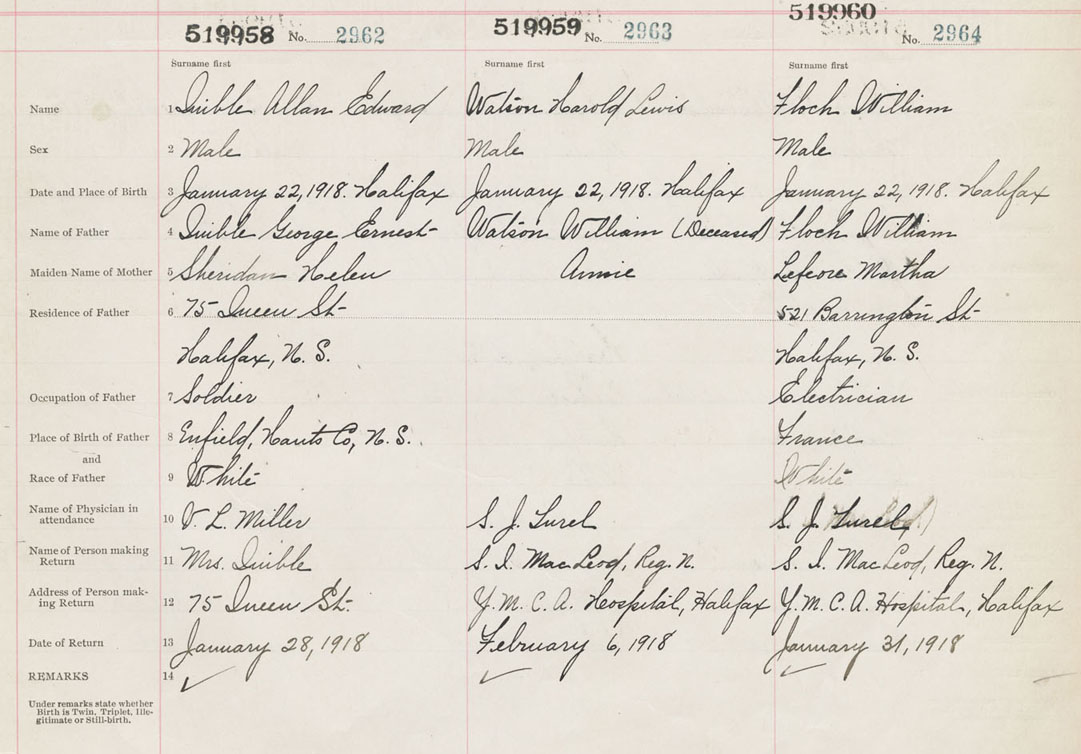 519958 No. 2962 519959 No. 2963 519960 No. 2964
Surname first Surname first Surname first
Name 1 Allan Edward Watson Harold Lewis Floch William
Sex 2 Male Male Male
Date and Place of Birth 3 January 22, 1918. Halifax January 22, 1918. Halifax January 22, 1918. Halifax
Name of Father 4 George Ernest Watson William (Deceased) Floch William
Maiden Name of Mother 5 Sheridan Helen Annie Martha
Residence of Father 6 75 Queen St 521 Barrington St
Halifax, N. S. Halifax, N. S.
Occupation of Father 7 Soldier Electrician
Place of Birth of Father 8 Enfield, Hants Co, N. S. France
and
Race of Father 9 White White
Name of Physician in
attendance 10 V. L. Miller S. J. S. J.
Name of Person making
Return 11 Mrs. S. I. MacLeod, Reg. N. S. I. MacLeod, Reg. N.
Address of Person mak-
ing Return 12 75 Queen St. Y. M. C. A. Hospital, Halifax Y. M. C. A. Hospital, Halifax
Date of Return 13 January 28, 1918 February 6, 1918 January 31, 1918
REMARKS 14 ✓ ✓ ✓
Under remarks state whether
Birth is Twin, Triplet, Ille-
gitimate or Still-birth.